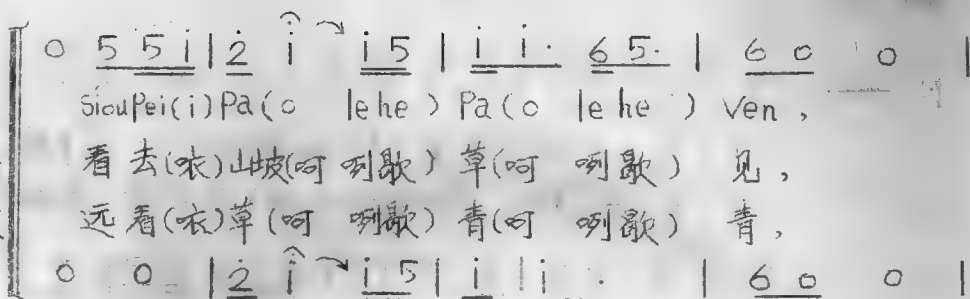 0 5 5 i | 2 i i 5 | i i · 6 5 · | 6 0 0 |
SiouPei(i)Pa(o lehe) Pa(o lehe) Ven,
看去(咴)山坡(呵咧歇)草(呵咧歇)见,
远看(咴)草(呵咧歇)青(呵咧歇)青,
0 0 | 2 i i 5 | i i · | 6 0 0 |